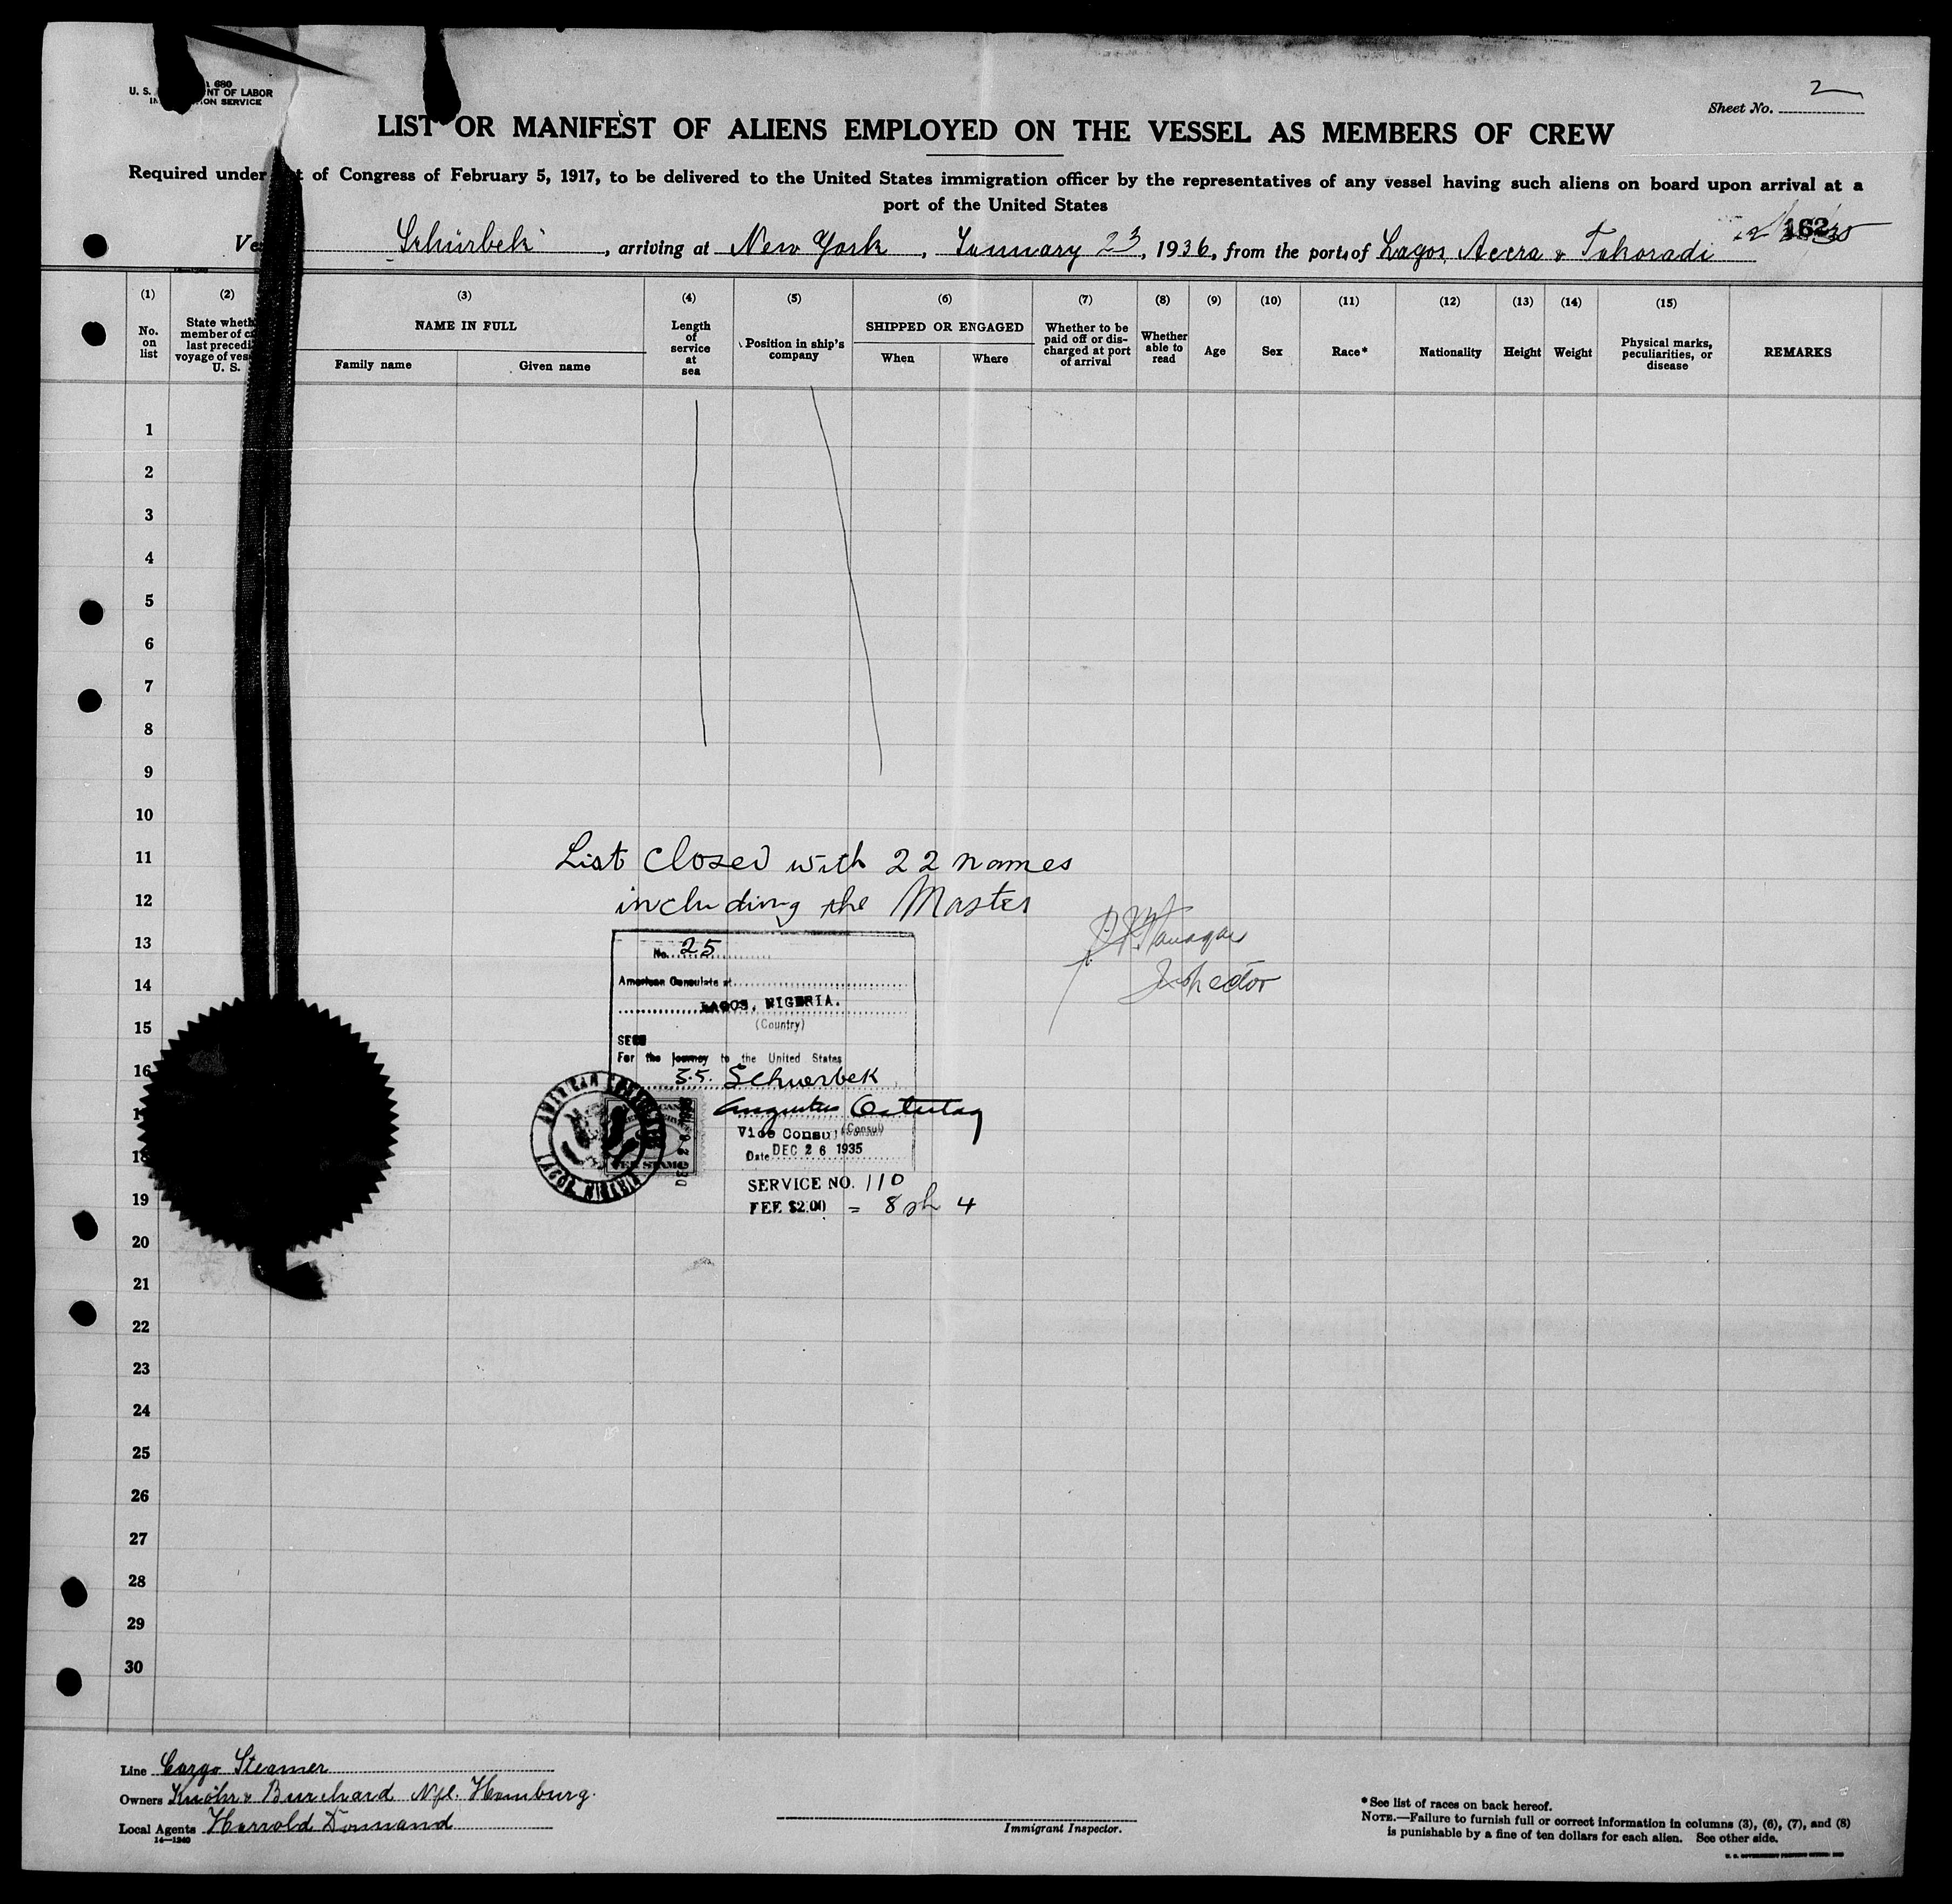 680
U. S. NT OF LABOR
ION SERVICE
Sheet No. 2
LIST OR MANIFEST OF ALIENS EMPLOYED ON THE VESSEL AS MEMBERS OF CREW
Required under of Congress of February 5, 1917, to be delivered to the United States immigration officer by the representatives of any vessel having such aliens on board upon arrival at a
port of the United States
162
Schürbek, arriving at New York, January 23, 1936, from the ports of Lagos, Accra & Takoradi
(1) (2) (3) (4) (5) (6) (7) (8) (9) (10) (11) (12) (13) (14) (15)
No. on list
State wheth member of c last precedi voyage of ves U. S.
NAME IN FULL
Family name
Given name
Length of service at sea
Position in ship's company
SHIPPED OR ENGAGED
When
Where
Whether to be paid off or discharged at port of arrival
Whether able to read
Age
Sex
Race*
Nationality
Height
Weight
Physical marks, peculiarities, or disease
REMARKS
1
2
3
4
5
6
7
8
9
10
11
List closed with 22 names
12
including the Master
13
No. 25
14
Inspector
American Consulate at
LAGOS, NIGERIA.
15
(Country)
SEEN
For the journey to the United States
16
S.S. Schuerbek
Augustus Ostertag
Vice Consul
(Consul)
Date DEC 26 1935
AMERICAN CONSULATE
LAGOS, NIGERIA
FEE STAMP
DEC 26 1935
18
SERVICE NO. 110
19
FEE $2.00 = 8 sh 4
20
21
22
23
24
25
26
27
28
29
30
Line Cargo Steamer
Owners Knöhr & Burchard Nfl. Hamburg.
Local Agents Harrold Dornand
14—1240
Immigrant Inspector.
*See list of races on back hereof.
NOTE.—Failure to furnish full or correct information in columns (3), (6), (7), and (8)
is punishable by a fine of ten dollars for each alien. See other side.